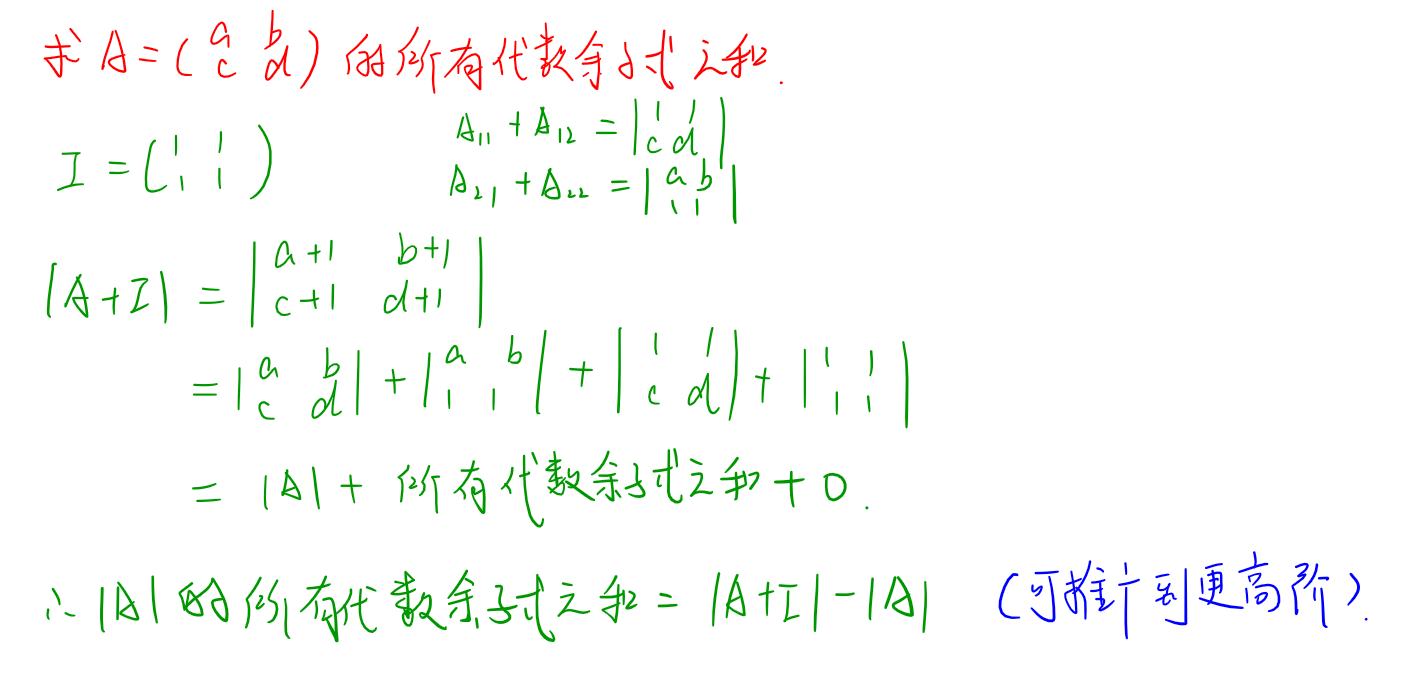 求 A = ( a b c d ) 的所有代数余子式之和.
I = ( 1 1 1 1 )
A₁₁ + A₁₂ = | 1 1 c d |
A₂₁ + A₂₂ = | a b 1 1 |
|A+I| = | a+1 b+1 c+1 d+1 |
= | a b c d | + | a b 1 1 | + | 1 1 c d | + | 1 1 1 1 |
= |A| + 所有代数余子式之和 + 0.
∴ |A| 的所有代数余子式之和 = |A+I| - |A| (可推广到更高阶).